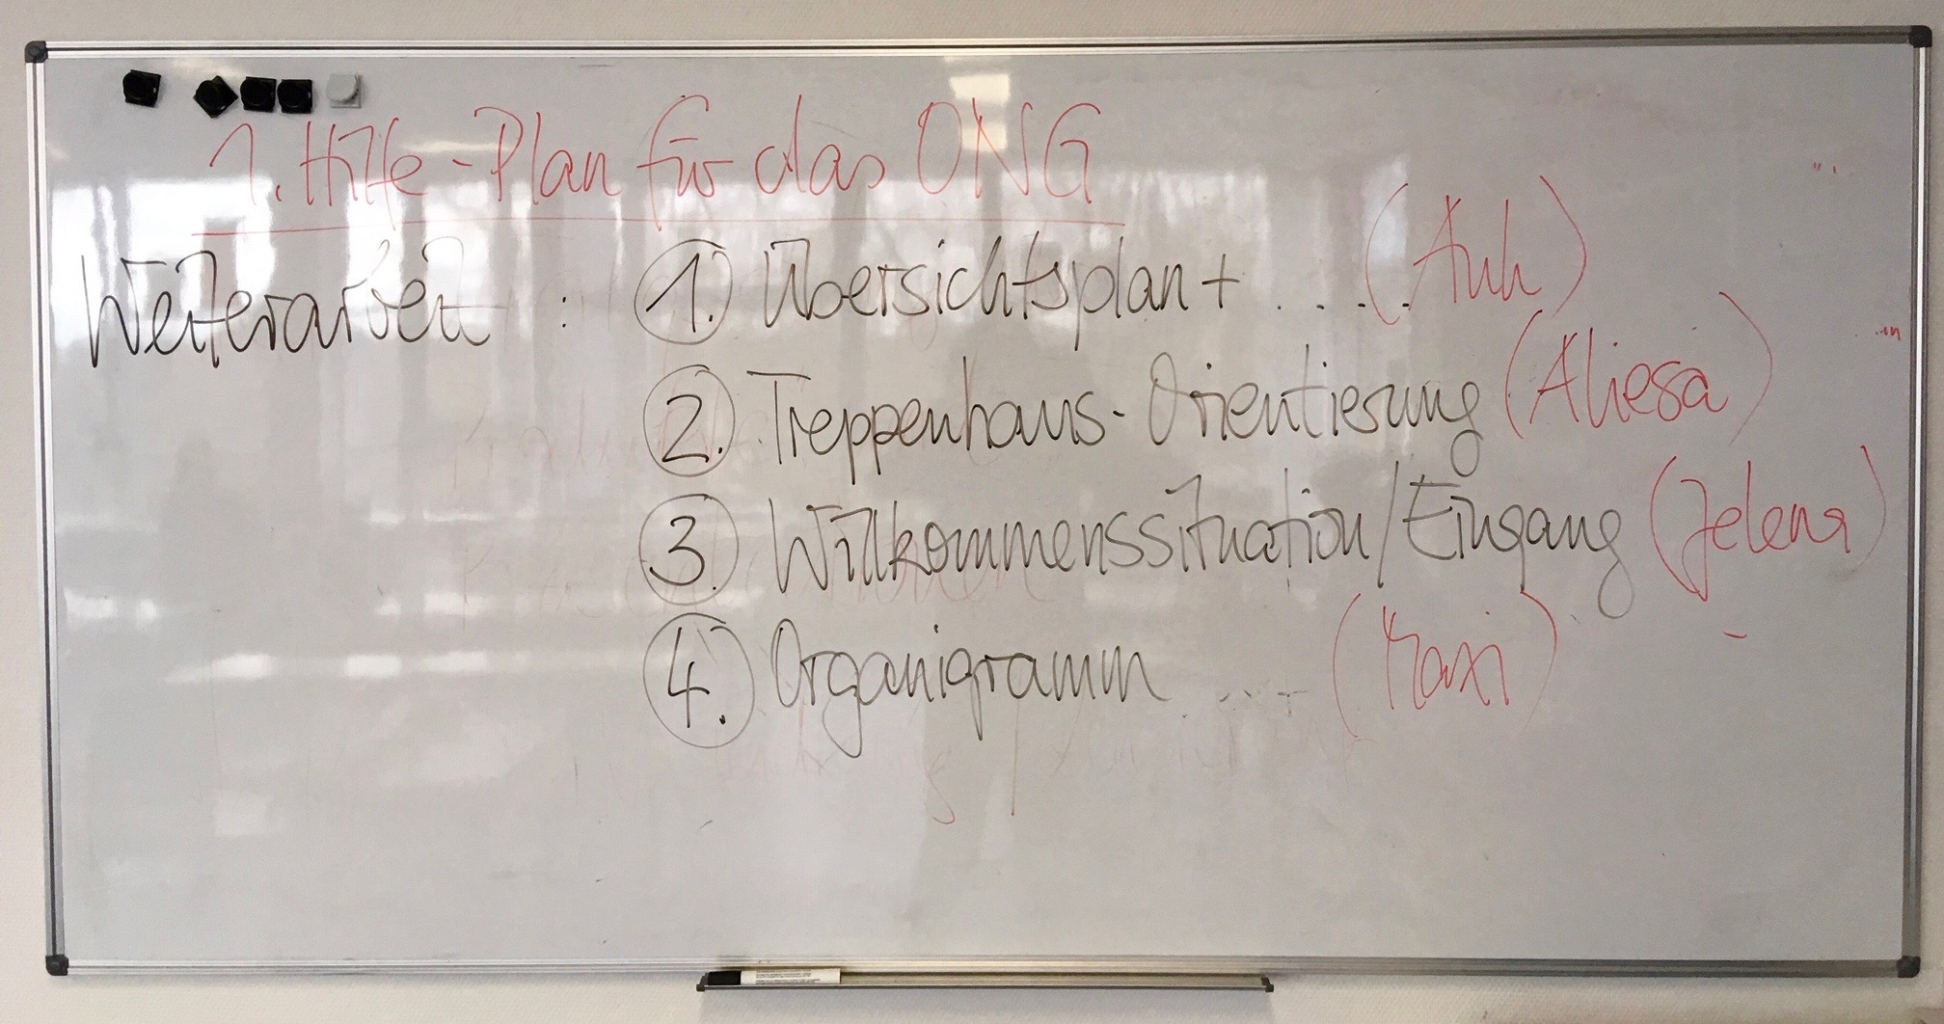 1. Hilfe-Plan für das ONG
Weiterarbeit : 1. Übersichtsplan + .... (Anh)
2. Treppenhaus-Orientierung (Aliesa)
3. Willkommenssituation/Eingang (Jelena)
4. Organigramm ... (Maxi)